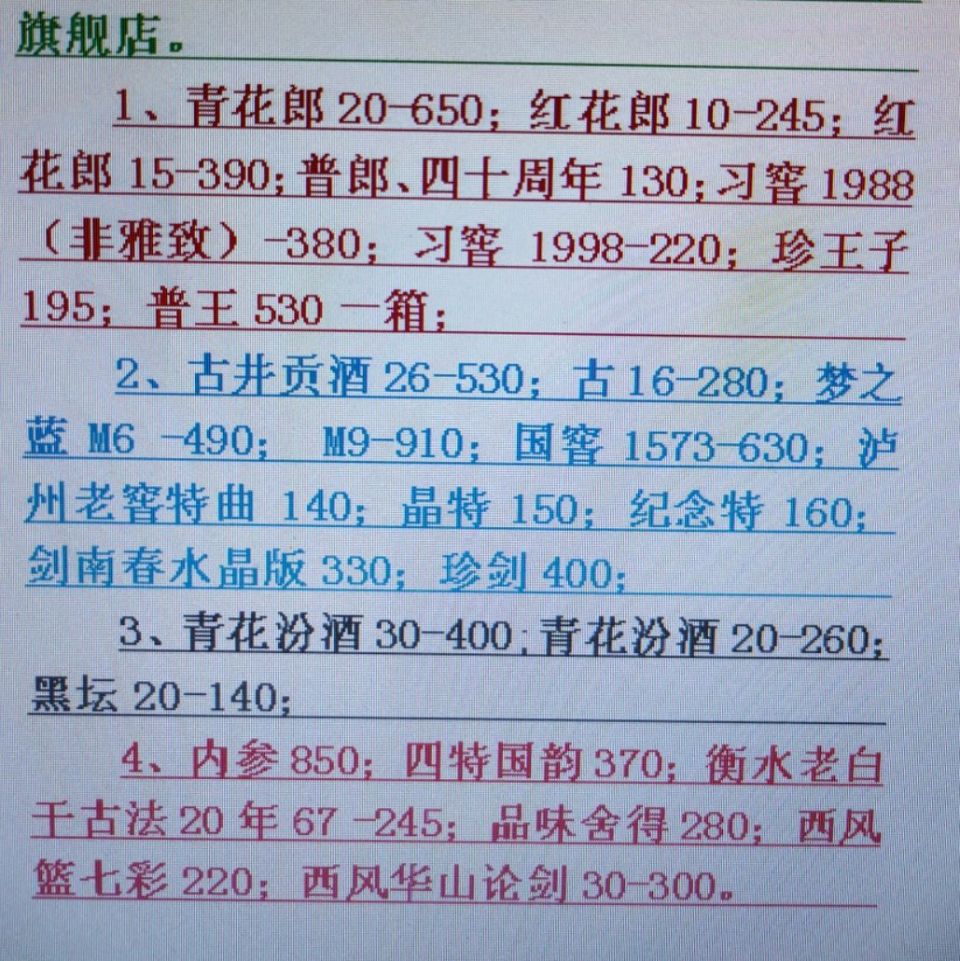 旗舰店。
1、青花郎 20-650；红花郎 10-245；红
花郎 15-390；普郎、四十周年 130；习窖 1988
（非雅致）-380；习窖 1998-220；珍王子
195；普王 530 一箱；
2、古井贡酒 26-530；古 16-280；梦之
蓝 M6 -490； M9-910；国窖 1573-630；泸
州老窖特曲 140；晶特 150；纪念特 160；
剑南春水晶版 330；珍剑 400；
3、青花汾酒 30-400；青花汾酒 20-260；
黑坛 20-140；
4、内参 850；四特国韵 370；衡水老白
干古法 20 年 67 -245；品味舍得 280；西风
篮七彩 220；西风华山论剑 30-300。